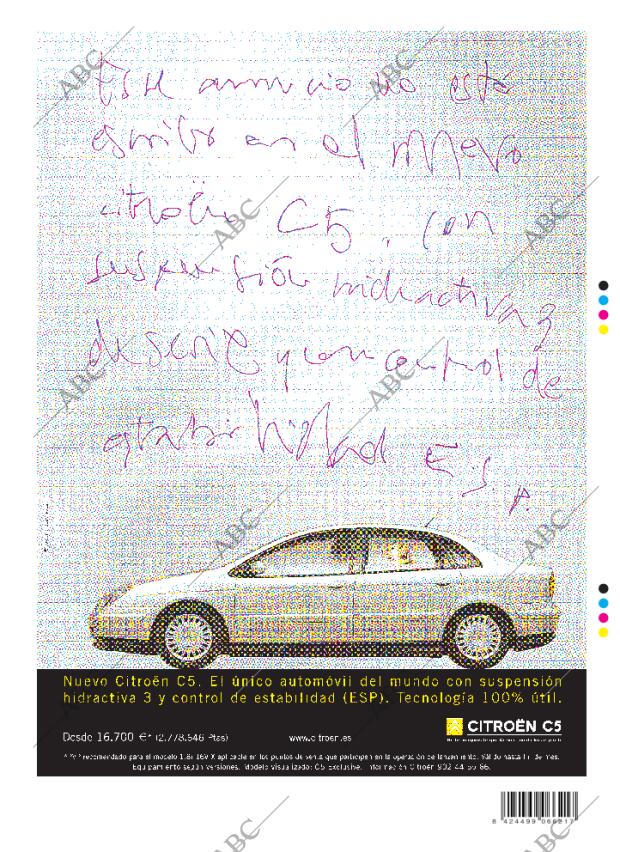 Este anuncio no está
escrito en el nuevo
citroën C5, con
suspensión hidractiva 3
de serie y con control de
estabilidad E.S.P.
Nuevo Citroën C5. El único automóvil del mundo con suspensión
hidractiva 3 y control de estabilidad (ESP). Tecnología 100% útil.
CITROËN C5
Desde 16.700 €* (2.778.546 Ptas) www.citroen.es
recomendado para el modelo 1.8i 16V X aplicable en los puntos de venta que participen en la operación de lanzamiento. Válido hasta fin de mes.
Equipamiento según versiones. Modelo visualizado: C5 Exclusive. Información Citroën 902 44 55 66.
8 424499 066217
ABC